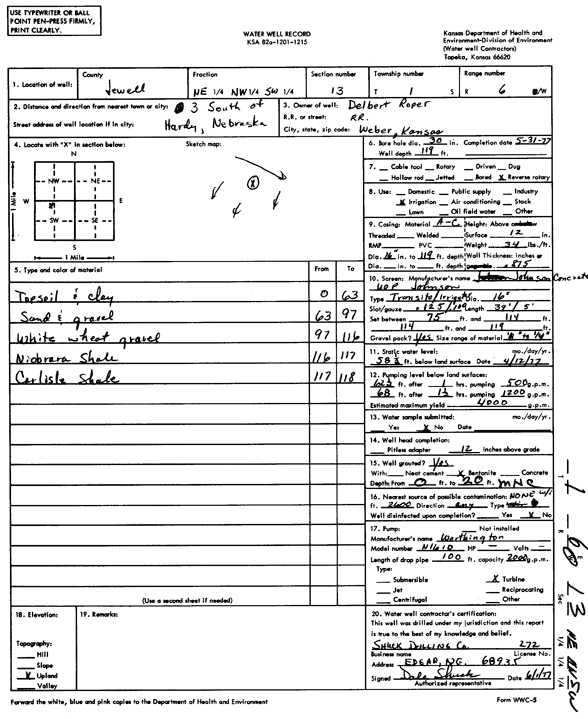 USE TYPEWRITER OR BALL
POINT PEN-PRESS FIRMLY,
PRINT CLEARLY.
WATER WELL RECORD
KSA 82a-1201-1215
Kansas Department of Health and
Environment-Division of Environment
(Water well Contractors)
Topeka, Kansas 66620
1. Location of well:
County
Jewell
Fraction
NE 1/4 NW 1/4 SW 1/4
Section number
13
Township number
T 1 S
Range number
R 6 E/W
2. Distance and direction from nearest town or city: 3 South of
Street address of well location if in city: Hardy, Nebraska
3. Owner of well: Delbert Roper
R.R. or street: R.R.
City, state, zip code: Weber, Kansas
4. Locate with "X" in section below:
Sketch map:
N
NW NE
W E
SW SE
S
1 Mile
1 Mile
X
6. Bore hole dia. 30 in. Completion date 5-31-77
Well depth 119 ft.
7. Cable tool Rotary Driven Dug
Hollow rod Jetted Bored X Reverse rotary
8. Use: Domestic Public supply Industry
X Irrigation Air conditioning Stock
Lawn Oil field water Other
9. Casing: Material A-C Height: Above
Threaded Welded Surface 12 in.
RMP PVC Weight 34 lbs./ft.
Dia. 16" in. to 119 ft. depth Wall Thickness: inches or
Dia. in. to ft. depth .875
5. Type and color of material From To
Topsoil & clay 0 63
Sand & gravel 63 97
White wheat gravel 97 116
Niobrara Shale 116 117
Carlisle Shale 117 118
(Use a second sheet if needed)
10. Screen: Manufacturer's name Johnson Concrete
UOP Johnson
Type Transite/Irrigator Dia. 16"
Slot/gauze .125/100 Length 39'/5'
Set between 75 ft. and 114
114 ft. and 119
Gravel pack? Yes Size range of material
11. Static water level: mo./day/yr.
58 1/2 ft. below land surface Date 4/12/77
12. Pumping level below land surfaces:
62 1/2 ft. after 1 hrs. pumping 500 g.p.m.
68 ft. after 1 1/2 hrs. pumping 1200 g.p.m.
Estimated maximum yield 4000 g.p.m.
13. Water sample submitted: mo./day/yr.
Yes X No Date
14. Well head completion:
Pitless adapter 12 Inches above grade
15. Well grouted? Yes
With: Neat cement X Bentonite Concrete
Depth: From 0 ft. to 20 ft. MNC
16. Nearest source of possible contamination: NONE w/i
ft. 2600 Direction any Type
Well disinfected upon completion? Yes X No
17. Pump: Not installed
Manufacturer's name Worthington
Model number H1610 HP — Volts —
Length of drop pipe 100 ft. capacity 2000 g.p.m.
Type:
Submersible X Turbine
Jet Reciprocating
Centrifugal Other
18. Elevation:
Topography:
Hill
Slope
X Upland
Valley
19. Remarks:
20. Water well contractor's certification:
This well was drilled under my jurisdiction and this report
is true to the best of my knowledge and belief.
SHUCK DRILLING Co. 272
Business name License No.
Address EDGAR, NE. 68935
Signed Dale Shuck Date 6/1/77
Authorized representative
Forward the white, blue and pink copies to the Department of Health and Environment
Form WWC-5
T R Sec 1/4 1/4 1/4
1 6 13 NE NW SW